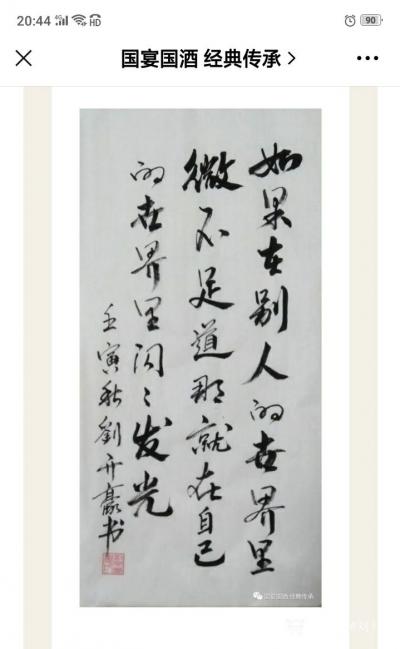 20:44 4G HD 90
国宴国酒 经典传承
如果在别人的世界里
微不足道那就在自己
的世界里闪〻发光
壬寅秋劉开豪书
国宴国酒经典传承